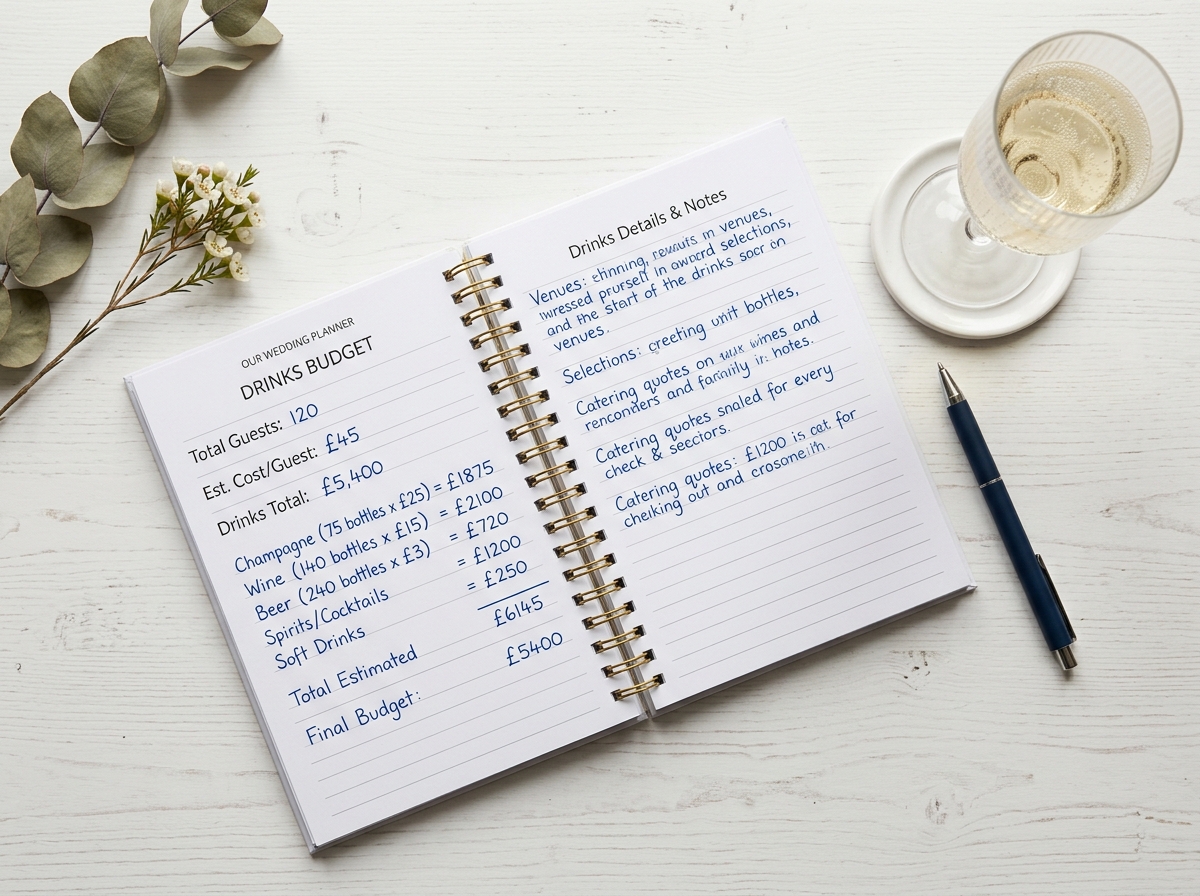 OUR WEDDING PLANNER
DRINKS BUDGET
Total Guests: 120
Est. Cost/Guest: £45
Drinks Total: £5,400
Champagne (75 bottles x £25) = £1875
Wine (140 bottles x £15) = £2100
Beer (240 bottles x £3) = £720
Spirits/Cocktails = £1200
Soft Drinks = £250
£6145
Total Estimated
£5400
Final Budget:
Drinks Details & Notes
Venues: in venues,
in selections,
and the start of the drinks on
venues.
Selections: unit bottles,
Catering quotes on wines and
and in hotes.
Catering quotes snaled for every
check & seectors.
Catering quotes: £1200 is for
out and